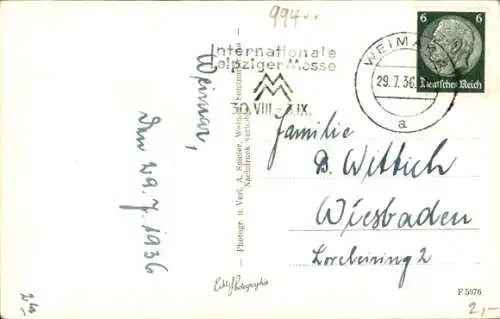 994
Internationale
Leipziger Messe
30.VIII.-3.IX.
WEIMAR
29.7.36
a
6 6
Deutsches Reich
Weimar,
Den 29.7.1936
Photogr. u. Verl. A. Spieler, Weimar
Nachdruck verboten
Echte Photographie
Familie
B. Wittich
Wiesbaden
Loreleiring 2
F 5976
2,-